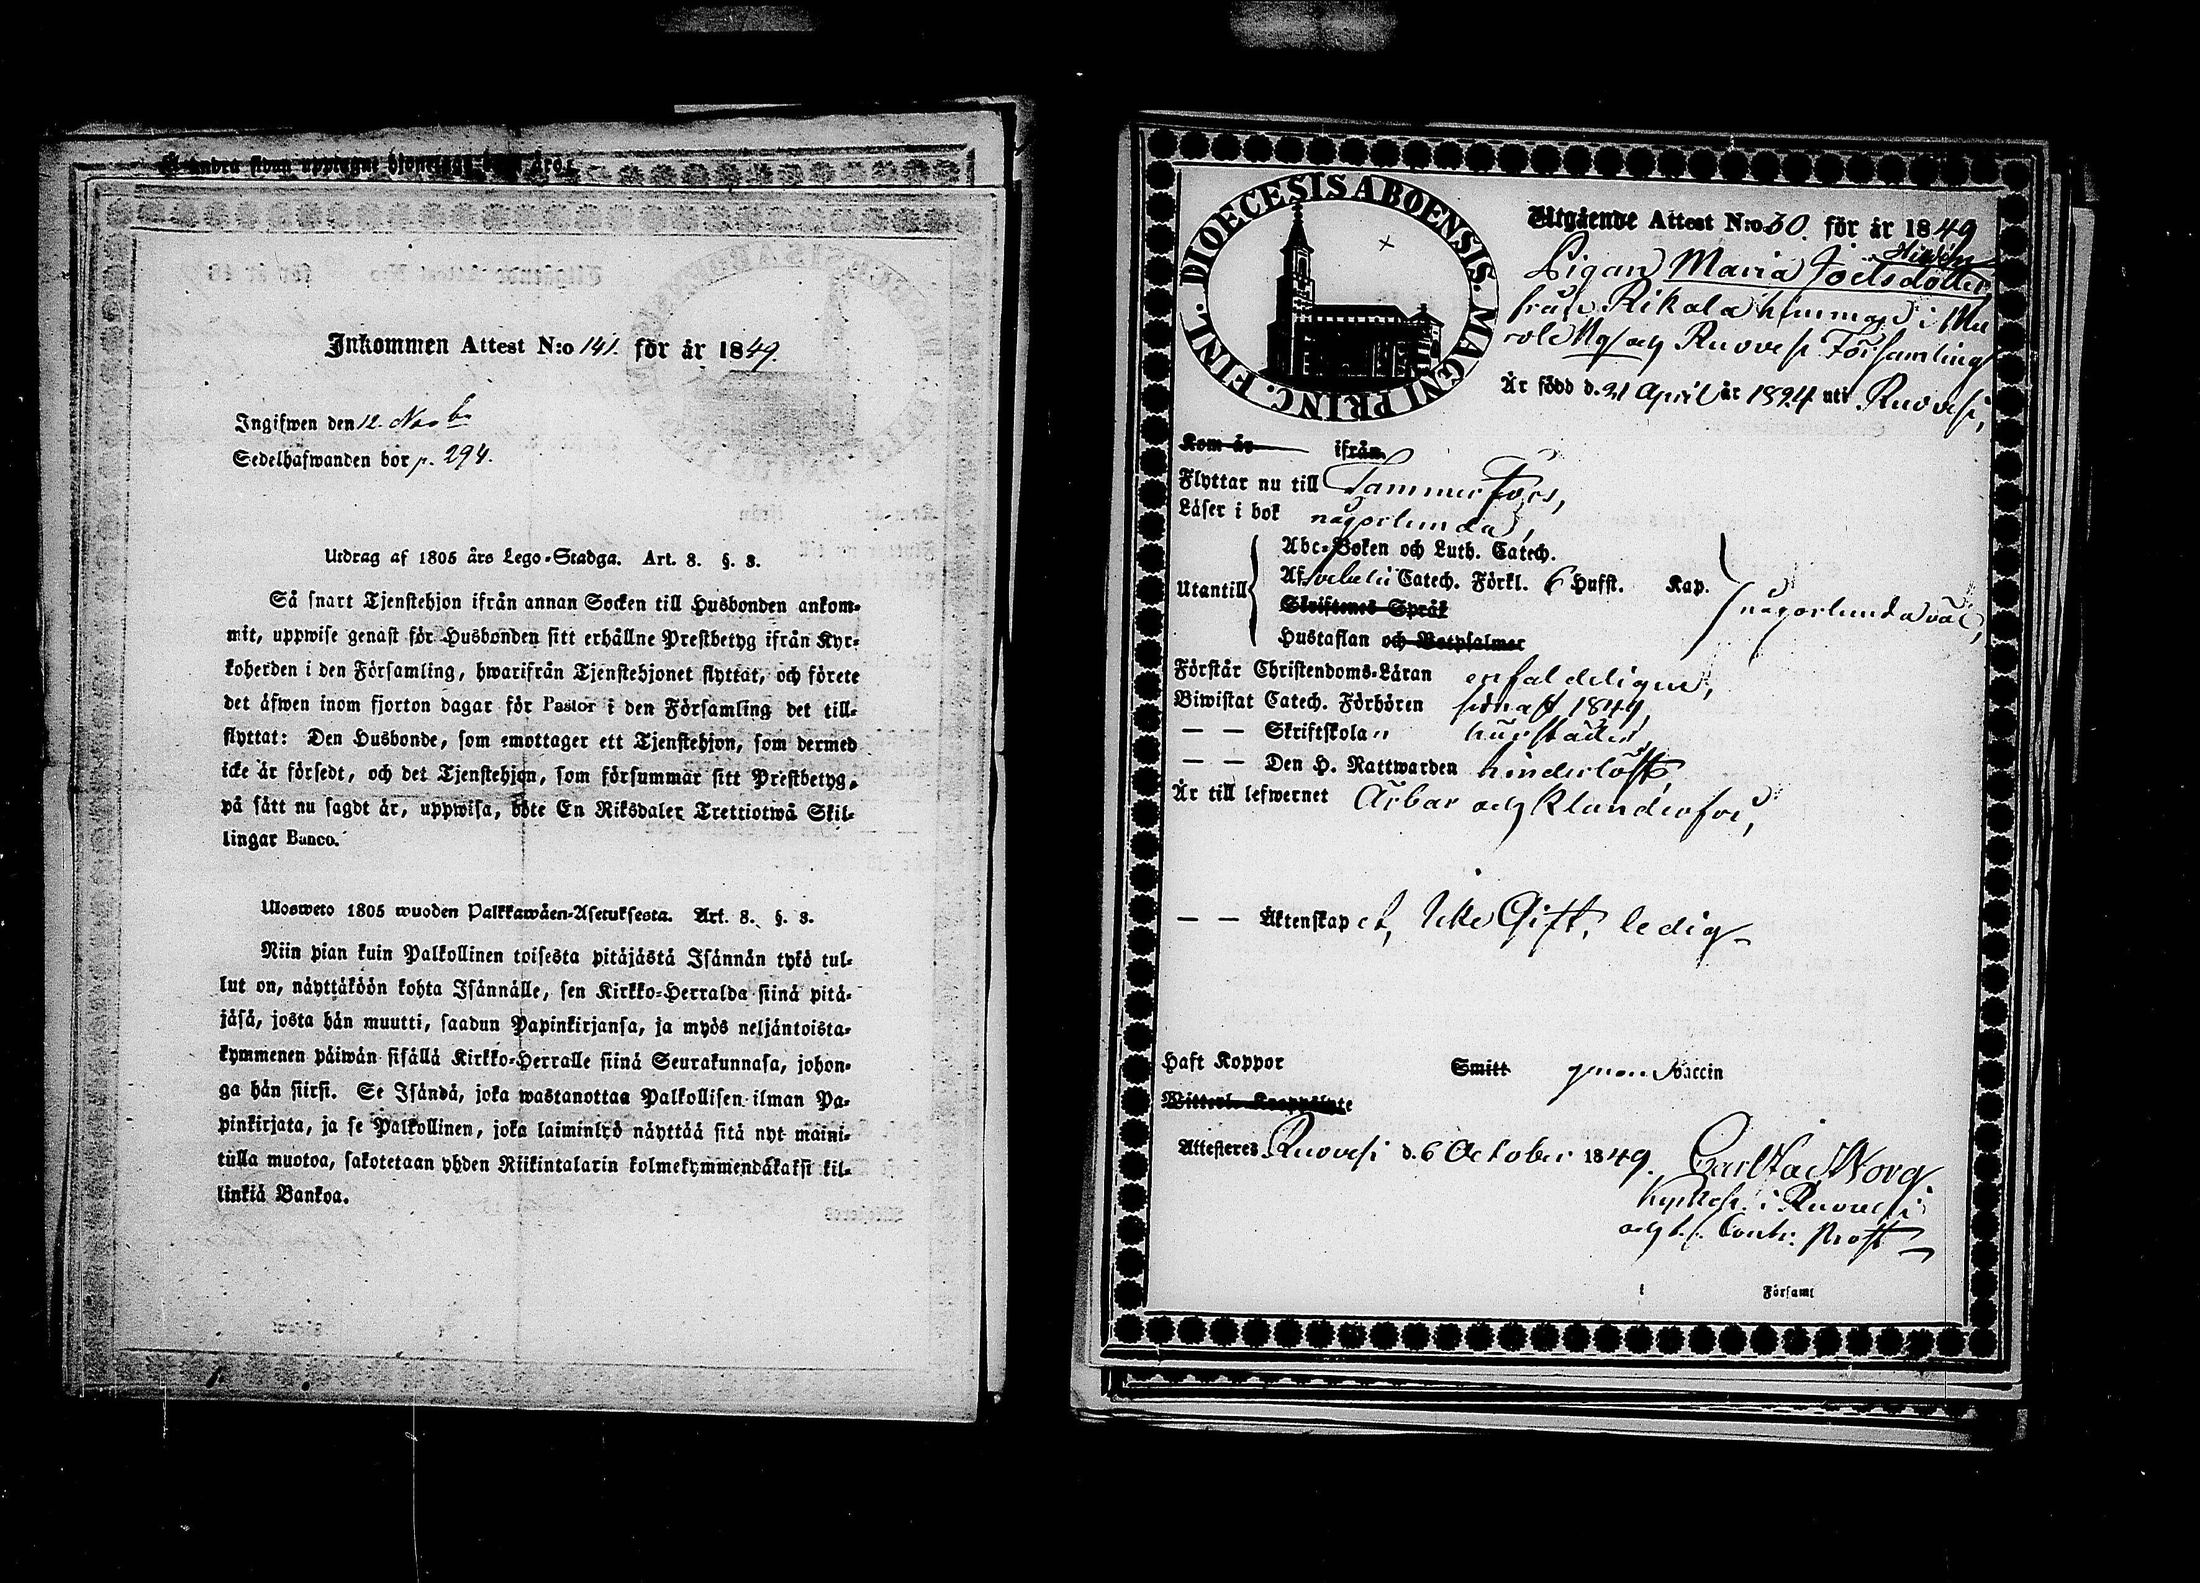 å andra sidan upptagne
Inkommen Attest N:o 141. för år 1849.
Ingifwen den 12. Novb
Sedelhafwanden bor p. 294.
Utdrag af 1805 års Lego-Stadga. Art. 8. §. 8.
Så snart Tjenstehjon ifrån annan Socken till Husbonden ankom-
mit, uppwise genast för Husbonden sitt erhållne Prestbetyg ifrån Kyr-
koherden i den Församling, hwarifrån Tjenstehjonet flyttat, och förete
det äfwen inom fjorton dagar för Pastor i den Församling det till-
flyttat: Den Husbonde, som emottager ett Tjenstehjon, som dermed
icke är försedt, och det Tjenstehjon, som försummar sitt Prestbetyg,
på sätt nu sagdt är, uppwisa, böte En Riksdaler Trettiotwå Skil-
lingar Banco.
Ulosweto 1805 wuoden Palkkawäen-Asetuksesta. Art. 8. §. 8.
Niin pian kuin Palkollinen toisesta pitäjästä Isännän tykö tul-
lut on, näyttäköön kohta Isännälle, sen Kirkko-Herralda siinä pitä-
jäsä, josta hän muutti, saadun Papinkirjansa, ja myös neljäntoista-
kymmenen päiwän sisällä Kirkko-Herralle siinä Seurakunnasa, johon-
ga hän siirsi. Se Isändä, joka wastanottaa Palkollisen ilman Pa-
pinkirjata, ja se Palkollinen, joka laiminlyö näyttää sitä nyt maini-
tulla muotoa, sakotetaan yhden Riikintalarin kolmekymmendäkaksi kil-
linkiä Bankoa.
DIOECESIS ABOENSIS. MAGNI PRINC. FINL.
Utgående Attest N:o 30. för år 1849
Pigan Maria Joelsdotter
från Rikala hemman i Mu
role By och Ruovesi Församling
Är född d. 21 April år 1824 uti Ruovesi,
Kom år ifrån
Flyttar nu till Tammerfors,
Läser i bok någorlunda,
Abc-Boken och Luth. Catech.
Utantill Af Svebelii Catech. Förkl. 6 Hufst. Kap. någorlunda väl,
Skriftenes Språk
Hustaflan och Botpsalmer
Förstår Christendoms-Läran enfaldeligen,
Biwistat Catech. Förhören sednast 1849,
— — Skriftskolan
— — Den H. Nattwarden hinderlöst,
Är till lefwernet Ärbar och klanderfri,
— — Äktenskap et, Icke Gift, ledig
Haft Koppor Smitt genom Vaccin
Attesteres Ruovesi d. 6 October 1849.
Kyrkoh. i Ruovesi
och t.f. Contr. Prost
Församl